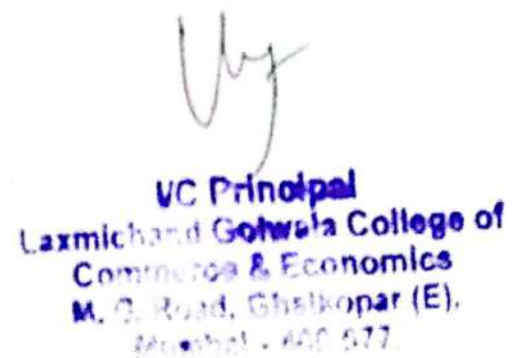 I/C Principal
Laxmichand Golwala College of
Commerce & Economics
M. G. Road, Ghatkopar (E),
Mumbai - 400 077.